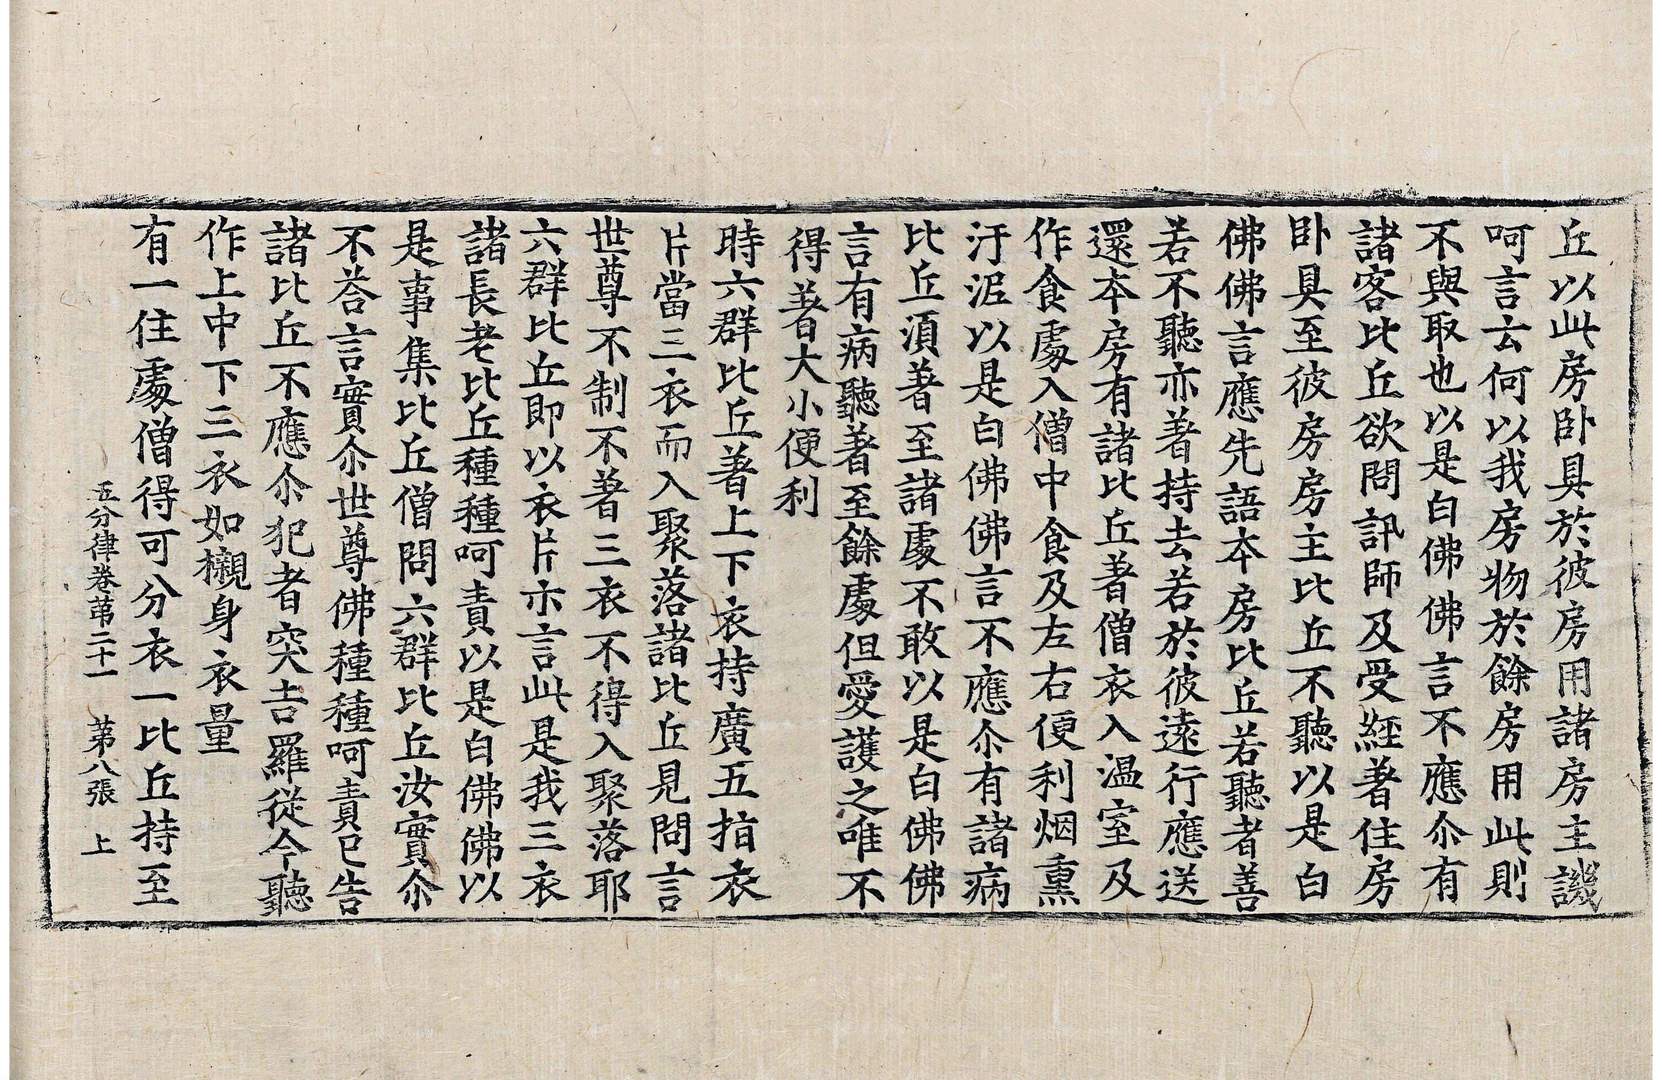 丘以此房卧具於彼房用諸房主譏
呵言云何以我房物於餘房用此則
不與取也以是白佛佛言不應尒有
諸客比丘欲問訊師及受經著住房
卧具至彼房房主比丘不聽以是白
佛佛言應先語本房比丘若聽者善
若不聽亦著持去若於彼遠行應送
還本房有諸比丘著僧衣入溫室及
作食處入僧中食及左右便利烟熏
汙泥以是白佛佛言不應尒有諸病
比丘須著至諸處不敢以是白佛佛
言有病聽著至餘處但愛護之唯不
得著大小便利
時六群比丘著上下衣持廣五指衣
片當三衣而入聚落諸比丘見問言
世尊不制不著三衣不得入聚落耶
六群比丘即以衣片示言此是我三衣
諸長老比丘種種呵責以是白佛佛以
是事集比丘僧問六群比丘汝實尒
不荅言實尒世尊佛種種呵責已告
諸比丘不應尒犯者突吉羅從今聽
作上中下三衣如襯身衣量
有一住處僧得可分衣一比丘持至
五分律卷第二十一 第八張 上